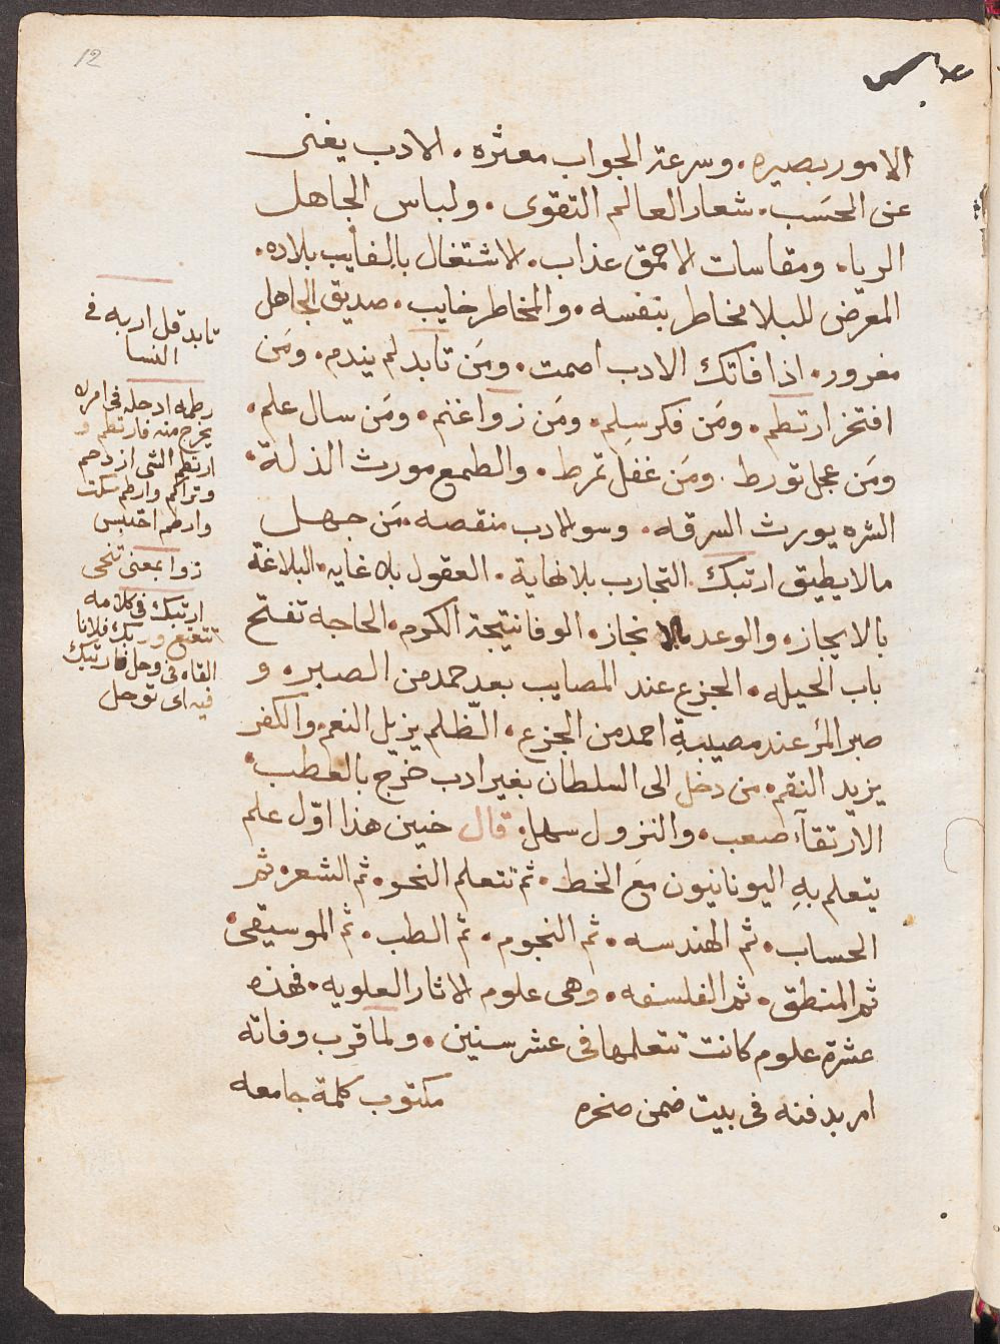 12
الامور بصيره. وسرعة الجواب معثره. الادب يغنى
عن الحسَب. شعار العالم التقوى. ولباس الجاهل
الريا. ومقاسات الاحمق عذاب. الاشتغال بالفايب بلاده.
المعرّض للبلا مخاطر بنفسه. والمخاطر خايب. صديق الجاهل
مغرور. اذا فاتك الادب اصمت. ومَن تابد لم يندم. ومَن
افتخر ارتطم. ومَن فكر سلم. ومَن زوا غنم. ومَن سال علم.
ومَن عجل تورط. ومَن غفل تمرط. والطمع مورث الذلة.
الشره يورث السرقه. وسو الادب منقصه. مَن جهل
مالا يطيق ارتبك. التجارب بلا نهاية. العقول بلا غايه. البلاغة
بالايجاز. والوعد بالانجاز. الوفا نتيجة الكرم. الحاجه تفتح
باب الحيله. الجزع عند المصايب بعد حمد من الصبر. و
صبر المرَ عند مصيبةِ احمد من الجزع. الظلم يزيل النعم. والكفر
يزيد النقم. من دخل الى السلطان بغير ادب خرج بالعطب.
الارتقآء صعب. والنزول سهل. قال حنين هذا اوّل علم
يتعلم بهِ اليونانيون مَع الخط. ثم تتعلم النحو. ثم الشعر. ثم
الحساب. ثم الهندسه. ثم النجوم. ثم الطب. ثم الموسيقى.
ثم المنطق. ثم الفلسفه. وهى علوم الاثار العلويه. فهذه
عشرة علوم كانت تتعلمها فى عشر سنين. ولما قرب وفاته
امر بدفنه فى بيت ضمن صخره مكتوب كلمة جامعه
تابد قل اربه فى
النسا
رطمه ادخله فى امر لا
يخرج منه فارتطم و
ارتطم الشى ازدحم
وتراكم وارطم سكت
وارطم احتبس
زوا بمعنى تنحى
ارتبك فى كلامه
تتعتع وربك فلانا
القاه فى وحل فارتبك
فيه اى توحل